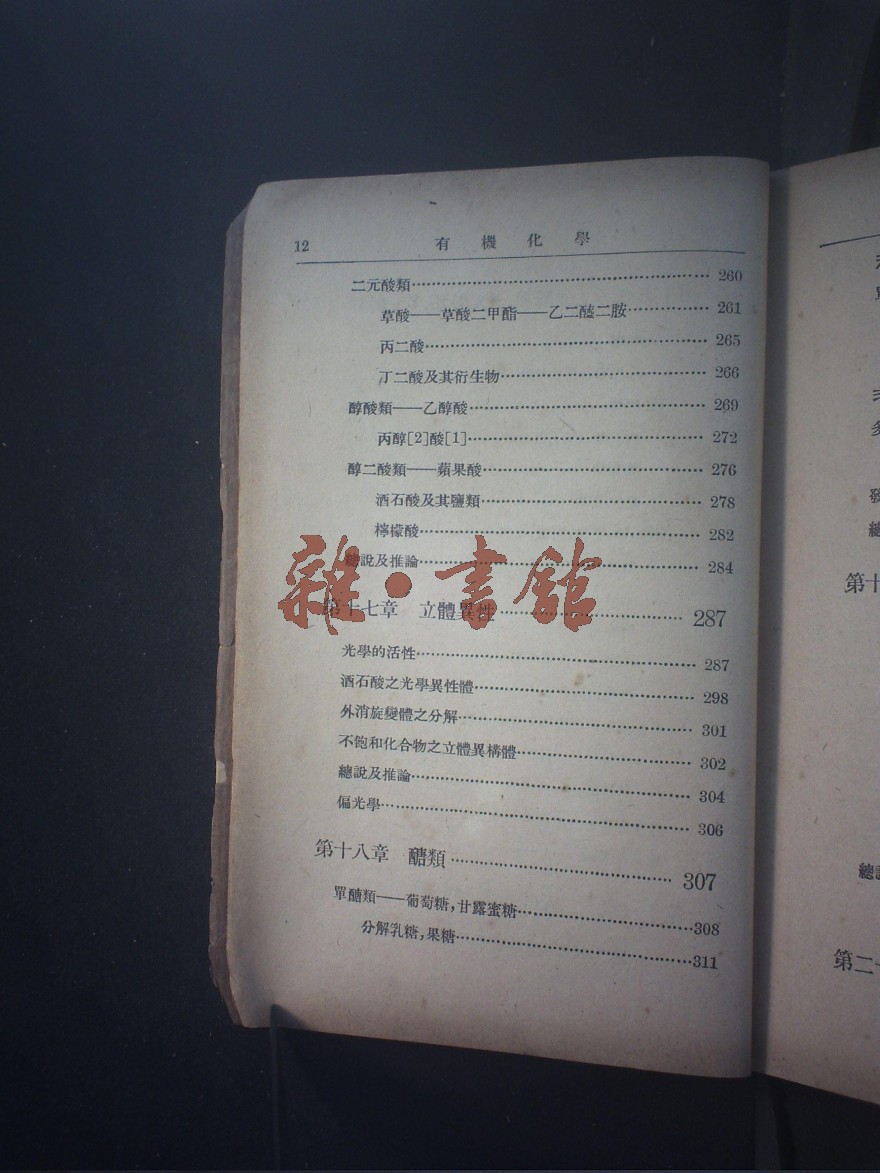 12 有機化學
二元酸類 260
草酸——草酸二甲酯——乙二醯二胺 261
丙二酸 265
丁二酸及其衍生物 266
醇酸類——乙醇酸 269
丙醇[2]酸[1] 272
醇二酸類——蘋果酸 276
酒石酸及其鹽類 278
檸檬酸 282
總說及推論 284
第十七章 立體異性 287
光學的活性 287
酒石酸之光學異性體 298
外消旋變體之分解 301
不飽和化合物之立體異構體 302
總說及推論 304
偏光學 306
第十八章 醣類 307
單醣類——葡萄糖,甘露蜜糖 308
分解乳糖,果糖 311
雜·書館
第十
第二十